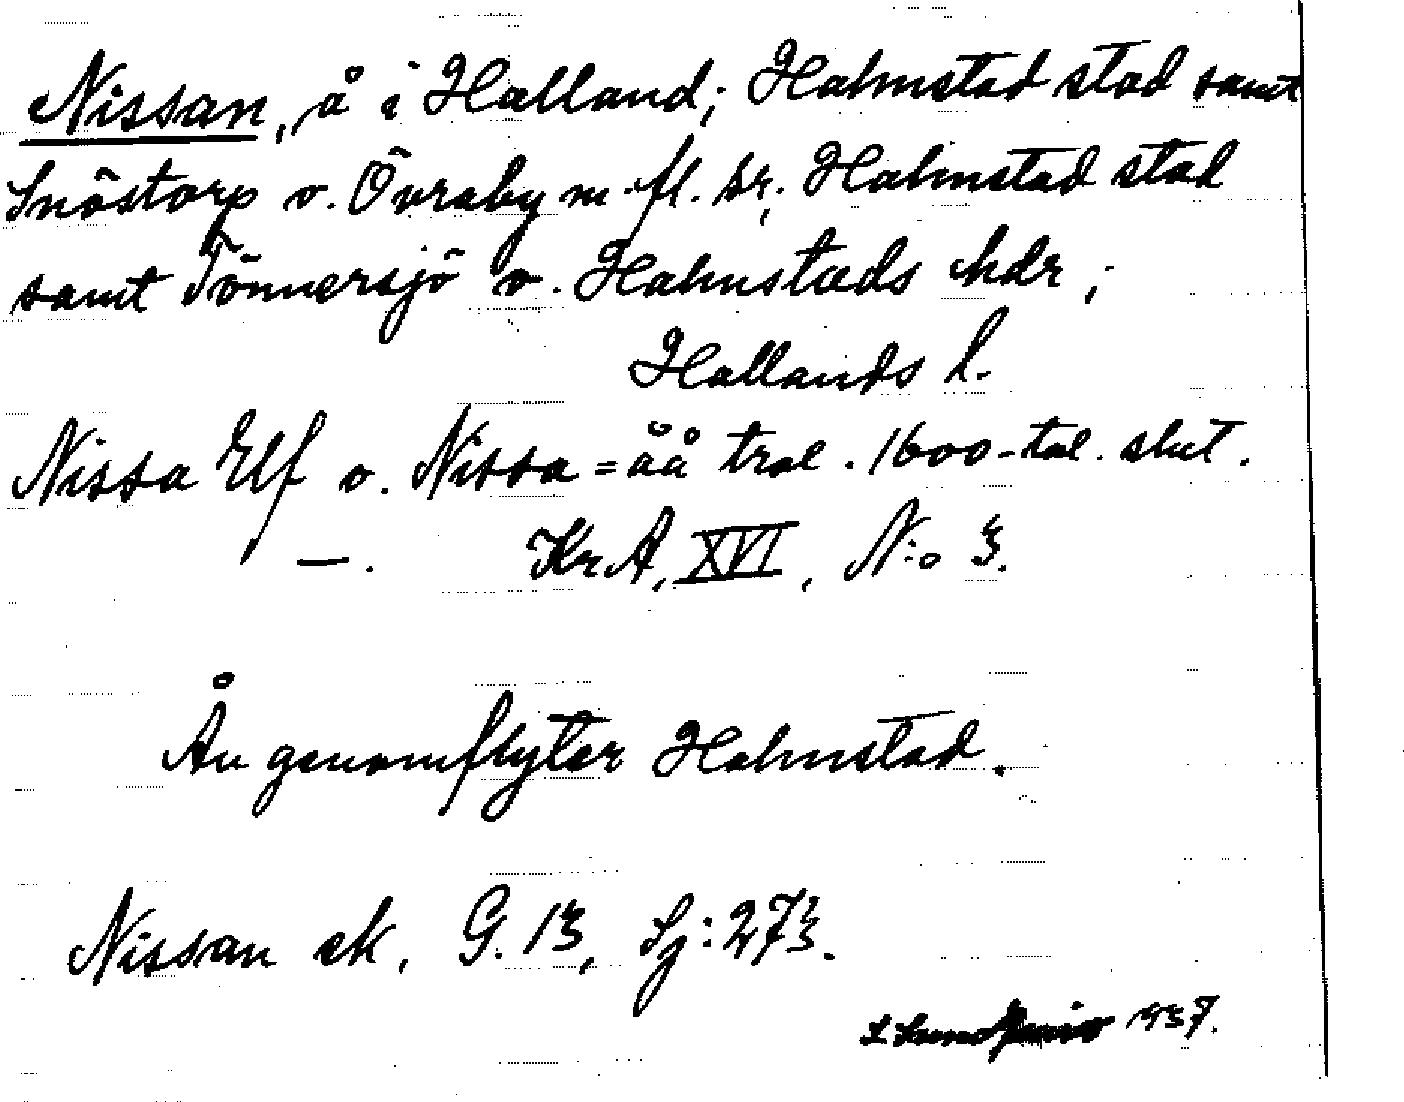 Nissan, å i Halland; Halmstad stad samt
Snöstorp o. Övraby m. fl. sr; Halmstad stad
samt Tönnersjö o. Halmstads hdr;
Hallands l.
Nissa Elf o. Nissa=åå trol. 1600-tal. slut.
—. KrA, XVI, N:o 3.
Ån genomflyter Halmstad.
Nissan ek, G. 13, Sj: 273.
1937.